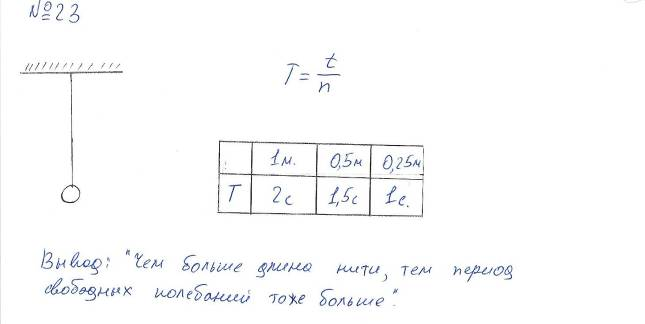 №23
T = t/n
1м. 0,5м 0,25м
T 2с 1,5с 1с.
Вывод: "Чем больше длина нити, тем период
свободных колебаний тоже больше".